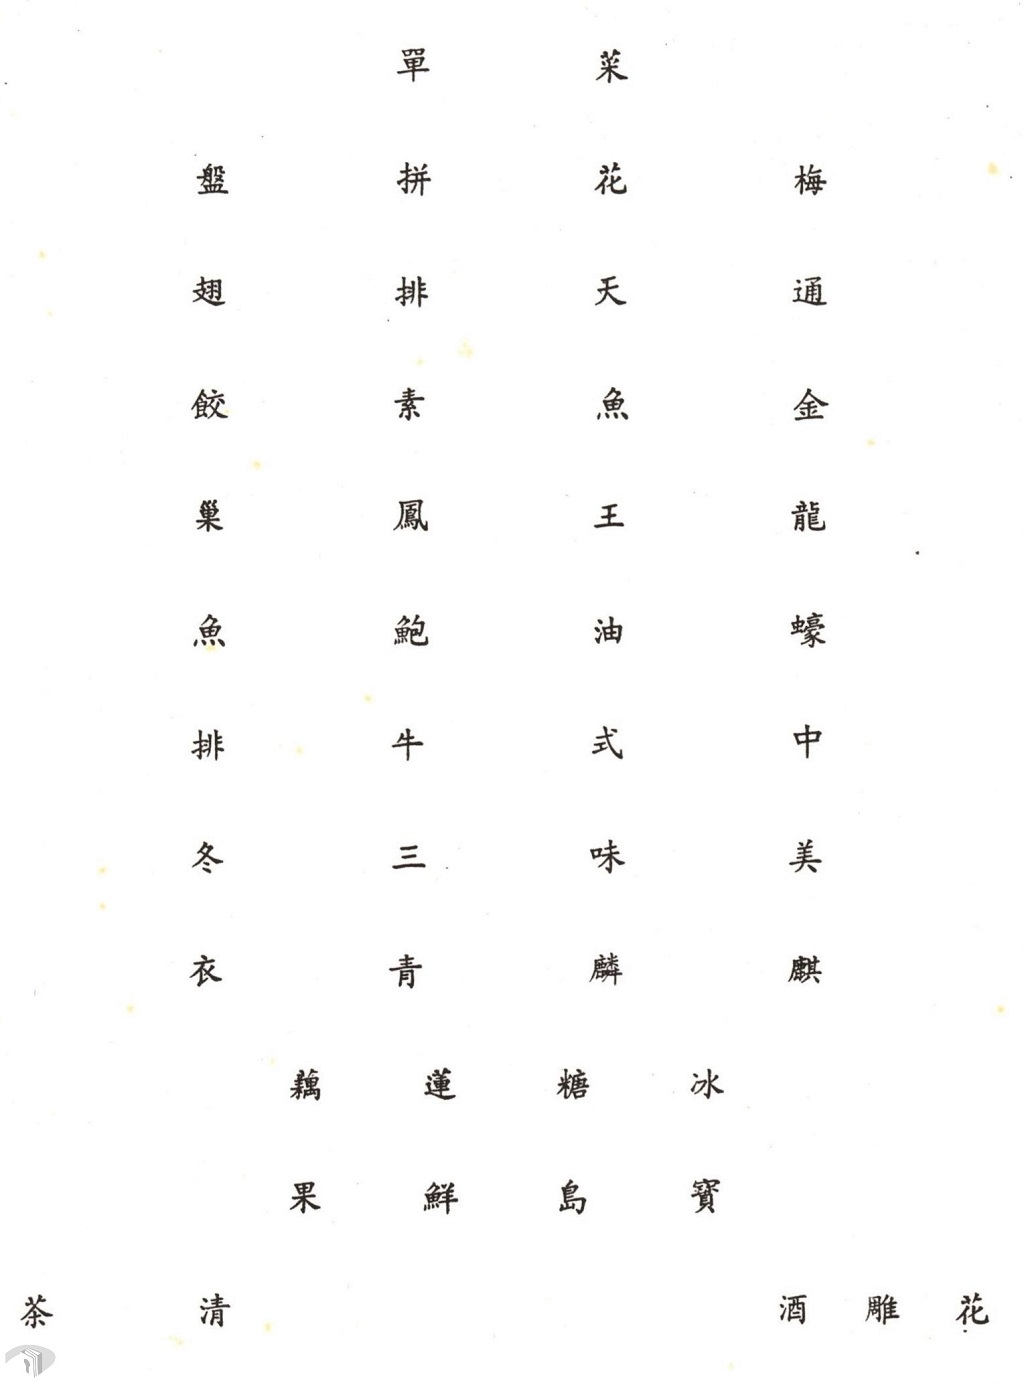 菜單
梅花拼盤
通天排翅
金魚素餃
龍王鳳巢
蠔油鮑魚
中式牛排
美味三冬
麒麟青衣
冰糖蓮藕
寶島鮮果
花雕酒 清茶